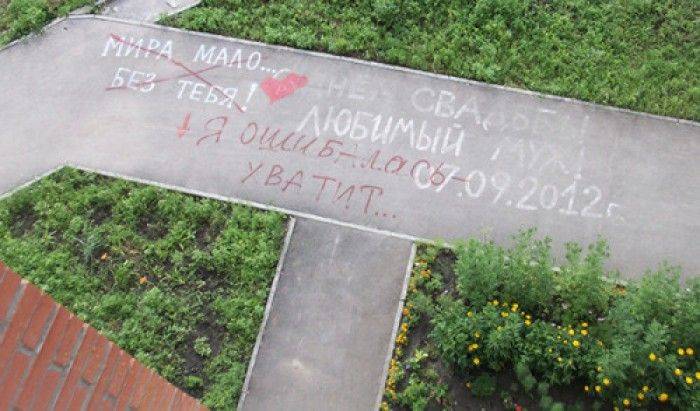 МИРА МАЛО...
БЕЗ ТЕБЯ!
СВАДЬБЫ
ЛЮБИМЫЙ МУЖ!
07.09.2012г.
Я ОШИБАЛАСЬ
УВАТИТ...